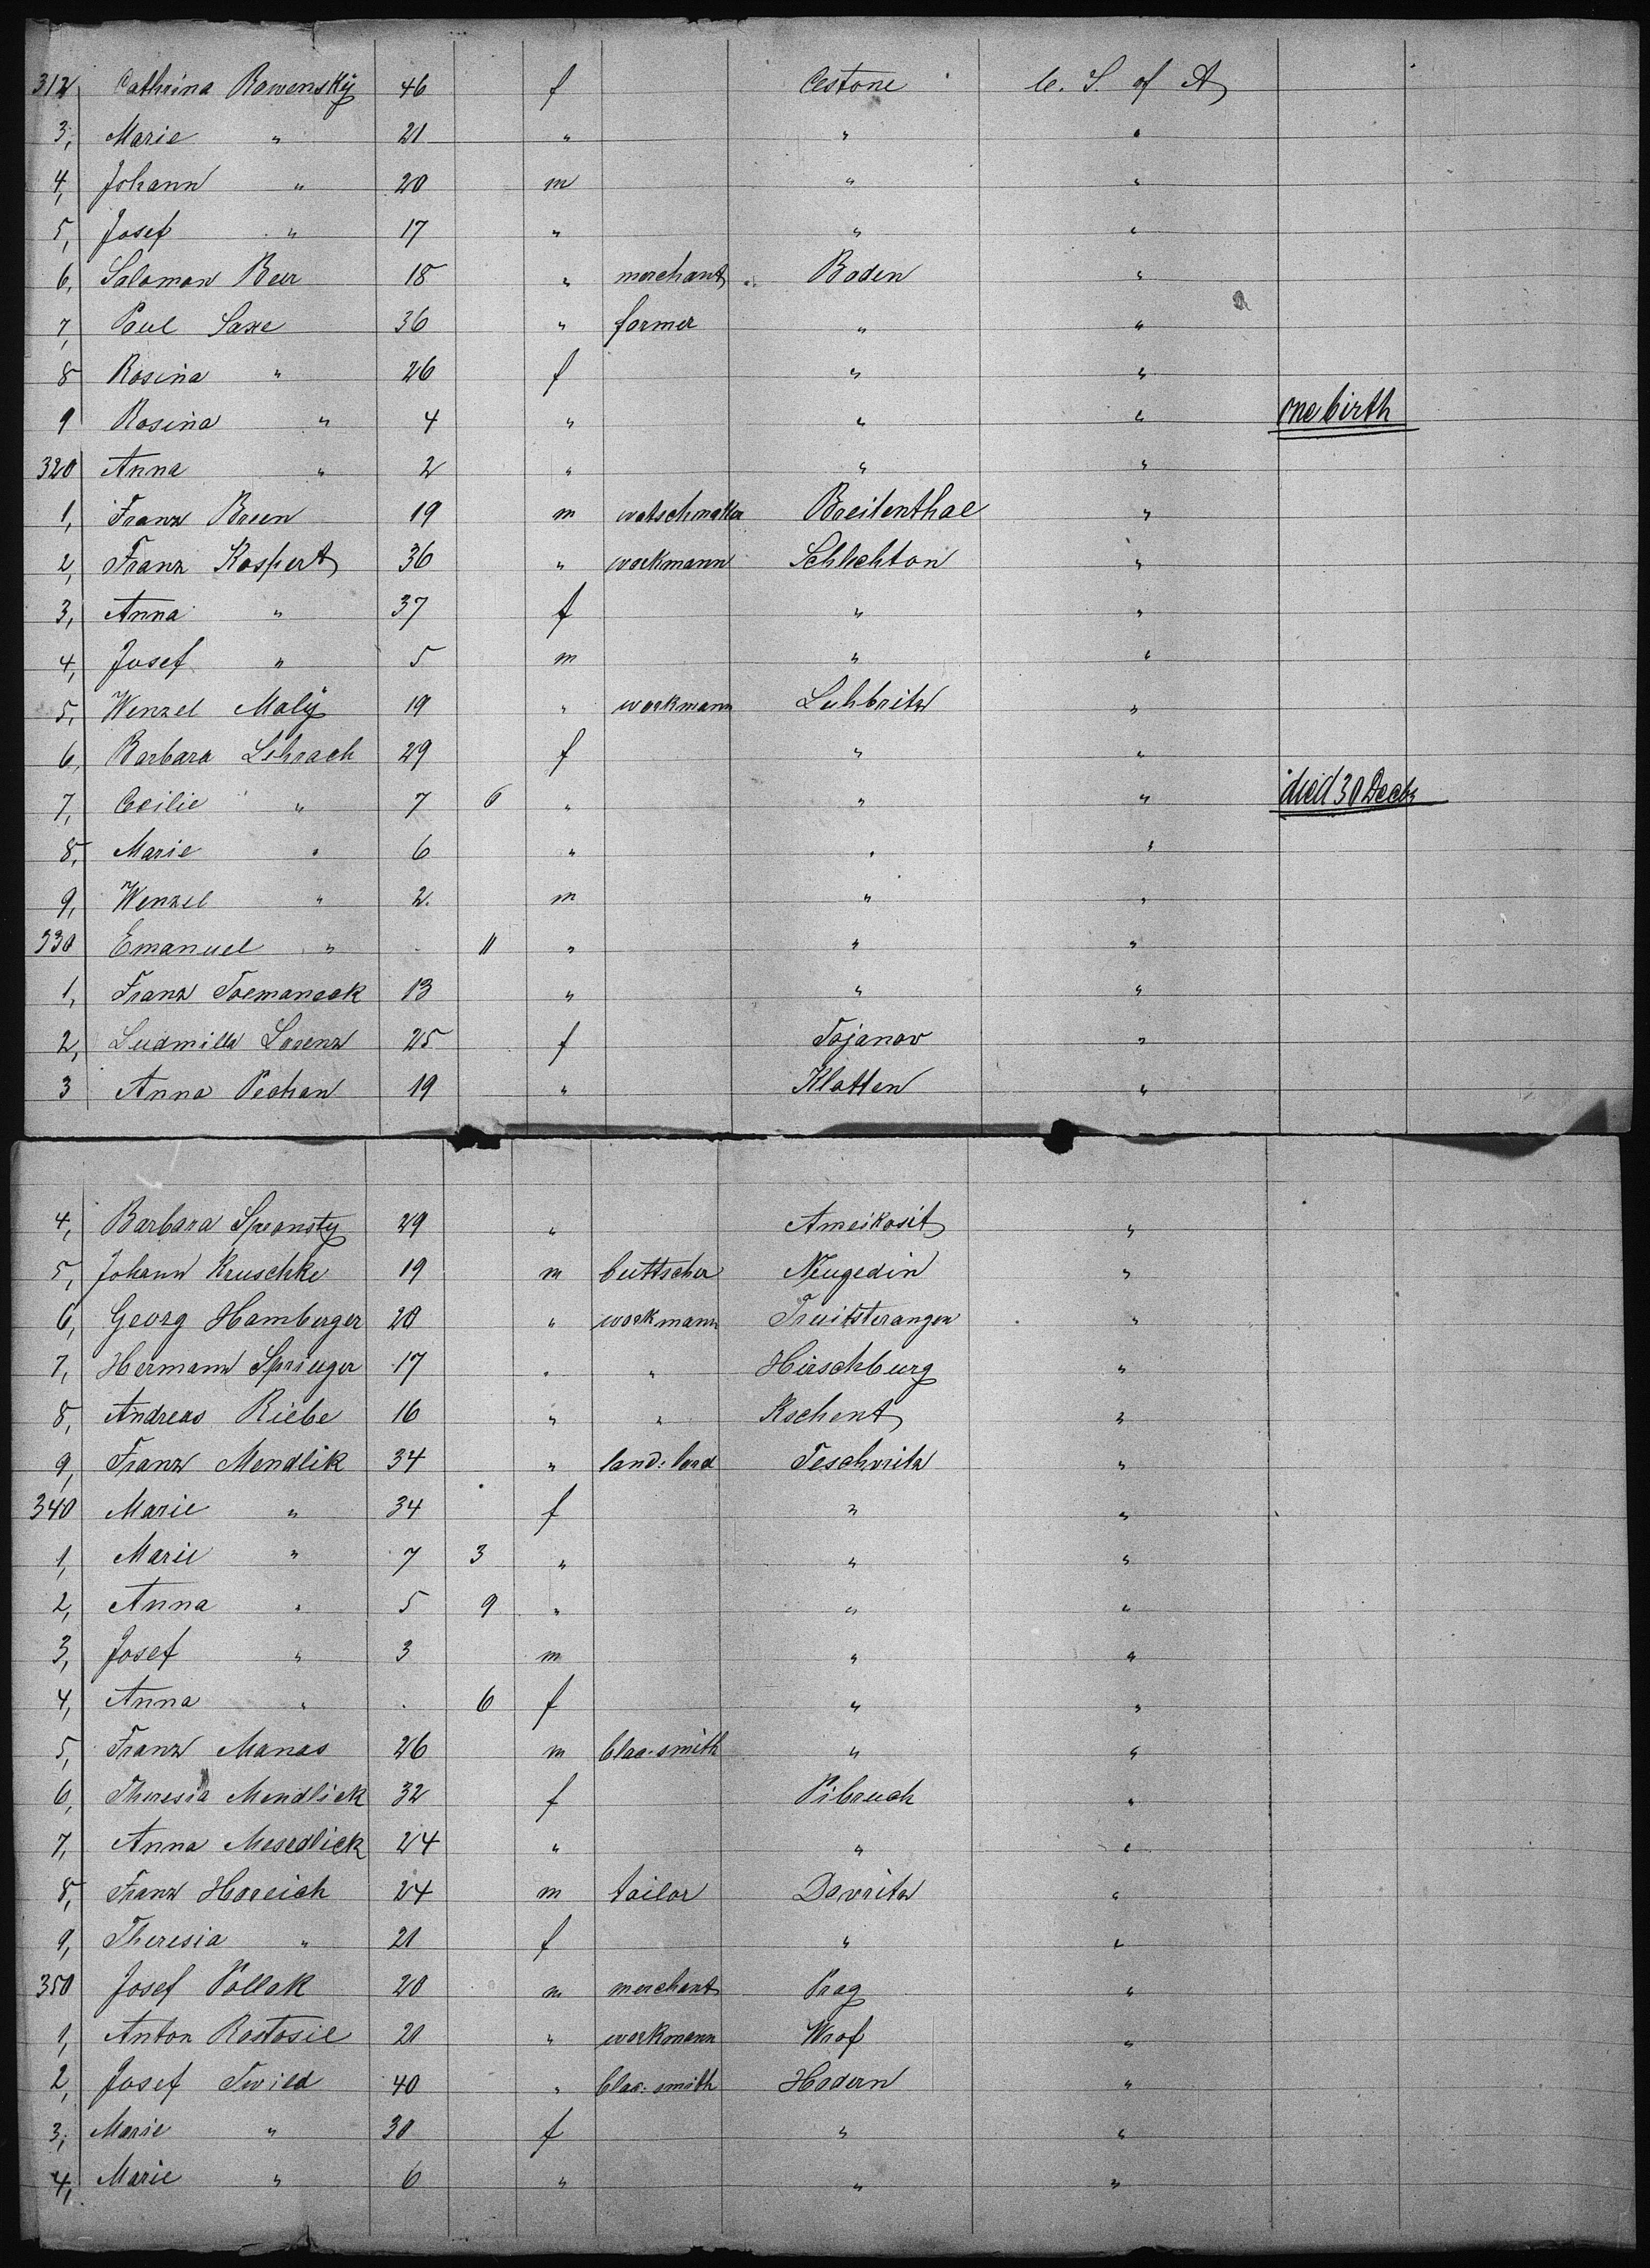 312 Cathrina Rawensky 46 f Cestone U. S. of A
3, Marie " 21 " " "
4, Johann " 20 m " "
5, Josef " 17 " " "
6, Salomon Beer 18 " merchant Baden "
7, Paul Saxe 36 " farmer " "
8 Rosina " 26 f " "
9 Rosina " 4 " " " one birth
320 Anna " 2 " " "
1, Franz Breen 19 m watschmaker Breitenthal "
2, Franz Kospert 36 " workmann Schlechton "
3, Anna " 37 f " "
4, Josef " 5 m " "
5, Wenzel Malÿ 19 " workmann Luhbritz "
6, Barbara Lehrach 29 f " "
7, Cecilie " 7 6 " " " died 30 Decbr
8, Marie " 6 " " "
9, Wenzel " 2. m " "
330 Emanuel " . 11 " " "
1, Franz Toemaneck 13 " " "
2, Ludmilla Lorenz 25 f Tojanov "
3 Anna Pechan 19 " Klatten "
4, Barbara Speansty 29 " Ameikosit "
5, Johann Kruschke 19 m buttscher Neugedin "
6, Georg Hamberger 20 " workmann Truitsterangen "
7, Hermann Springer 17 " " Hirschburg "
8, Andreas Riebe 16 " " Kschent "
9, Franz Mendlik 34 " land: lord Teschvritz "
340 Marie " 34 f " "
1, Marie " 7 3 " " "
2, Anna " 5 9 " " "
3, Josef " 3 m " "
4, Anna " . 6 f " "
5, Franz Manas 26 m blaa-smith " "
6, Theresia Mendlick 32 f Pibruch "
7, Anna Mesedlick 24 " " "
8, Franz Horeich 24 m tailor Davritz "
9, Theresia " 21 f " "
350 Josef Pollak 20 m merchant Prag "
1, Anton Rostosil 21 " workmann Wrof "
2, Josef Twild 40 " blac: smith Hodern "
3, Marie " 30 f " "
4, Marie " 6 " " "